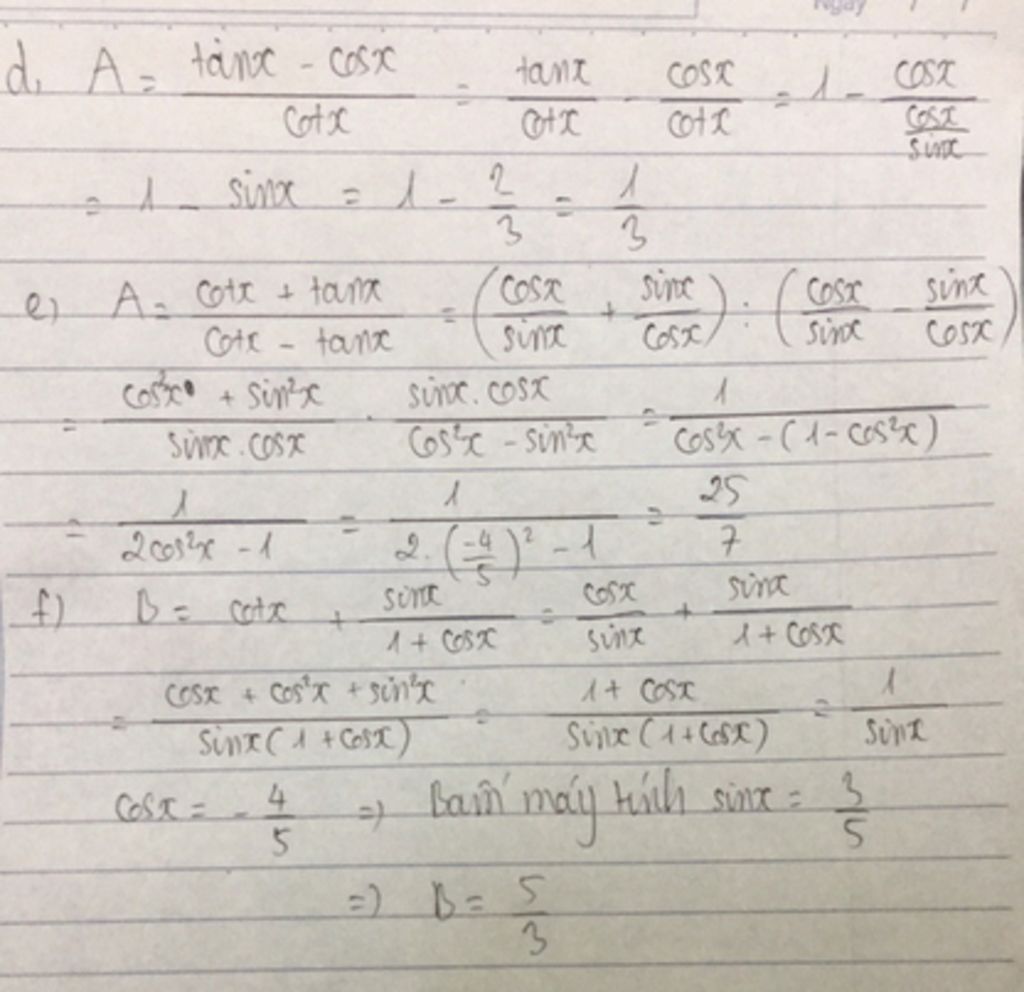 Ngày / /
d, A = (tanx - cosx)/(cotx) = tanx/cotx - cosx/cotx = 1 - cosx/(cosx/sinx)
= 1 - sinx = 1 - 2/3 = 1/3
e) A = (cotx + tanx)/(cotx - tanx) = (cosx/sinx + sinx/cosx) : (cosx/sinx - sinx/cosx)
= (cos²x + sin²x)/(sinx.cosx) . (sinx.cosx)/(cos²x - sin²x) = 1/(cos²x - (1 - cos²x))
= 1/(2cos²x - 1) = 1/(2.(-4/5)² - 1) = 25/7
f) B = cotx + sinx/(1 + cosx) = cosx/sinx + sinx/(1 + cosx)
= (cosx + cos²x + sin²x)/(sinx(1 + cosx)) = (1 + cosx)/(sinx(1 + cosx)) = 1/sinx
cosx = -4/5 => Bấm máy tính sinx = 3/5
=> B = 5/3